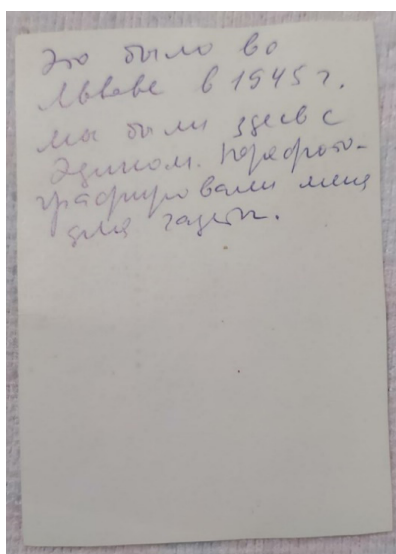 Это было во
Львове в 1945 г.
мы были здесь с
Эдиком. Перефото-
графировали меня
для газеты.